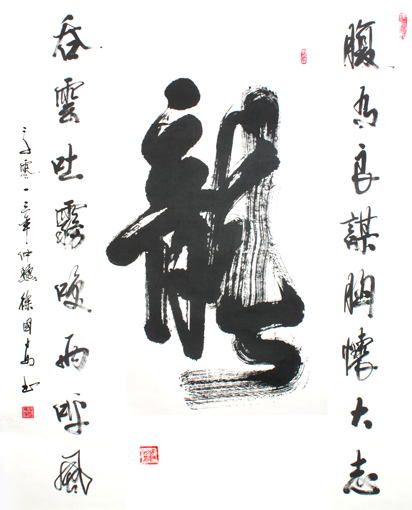 腹有良謀胸懷大志
龍
吞雲吐霧喚雨呼風
二零一三年仲秋徐国书